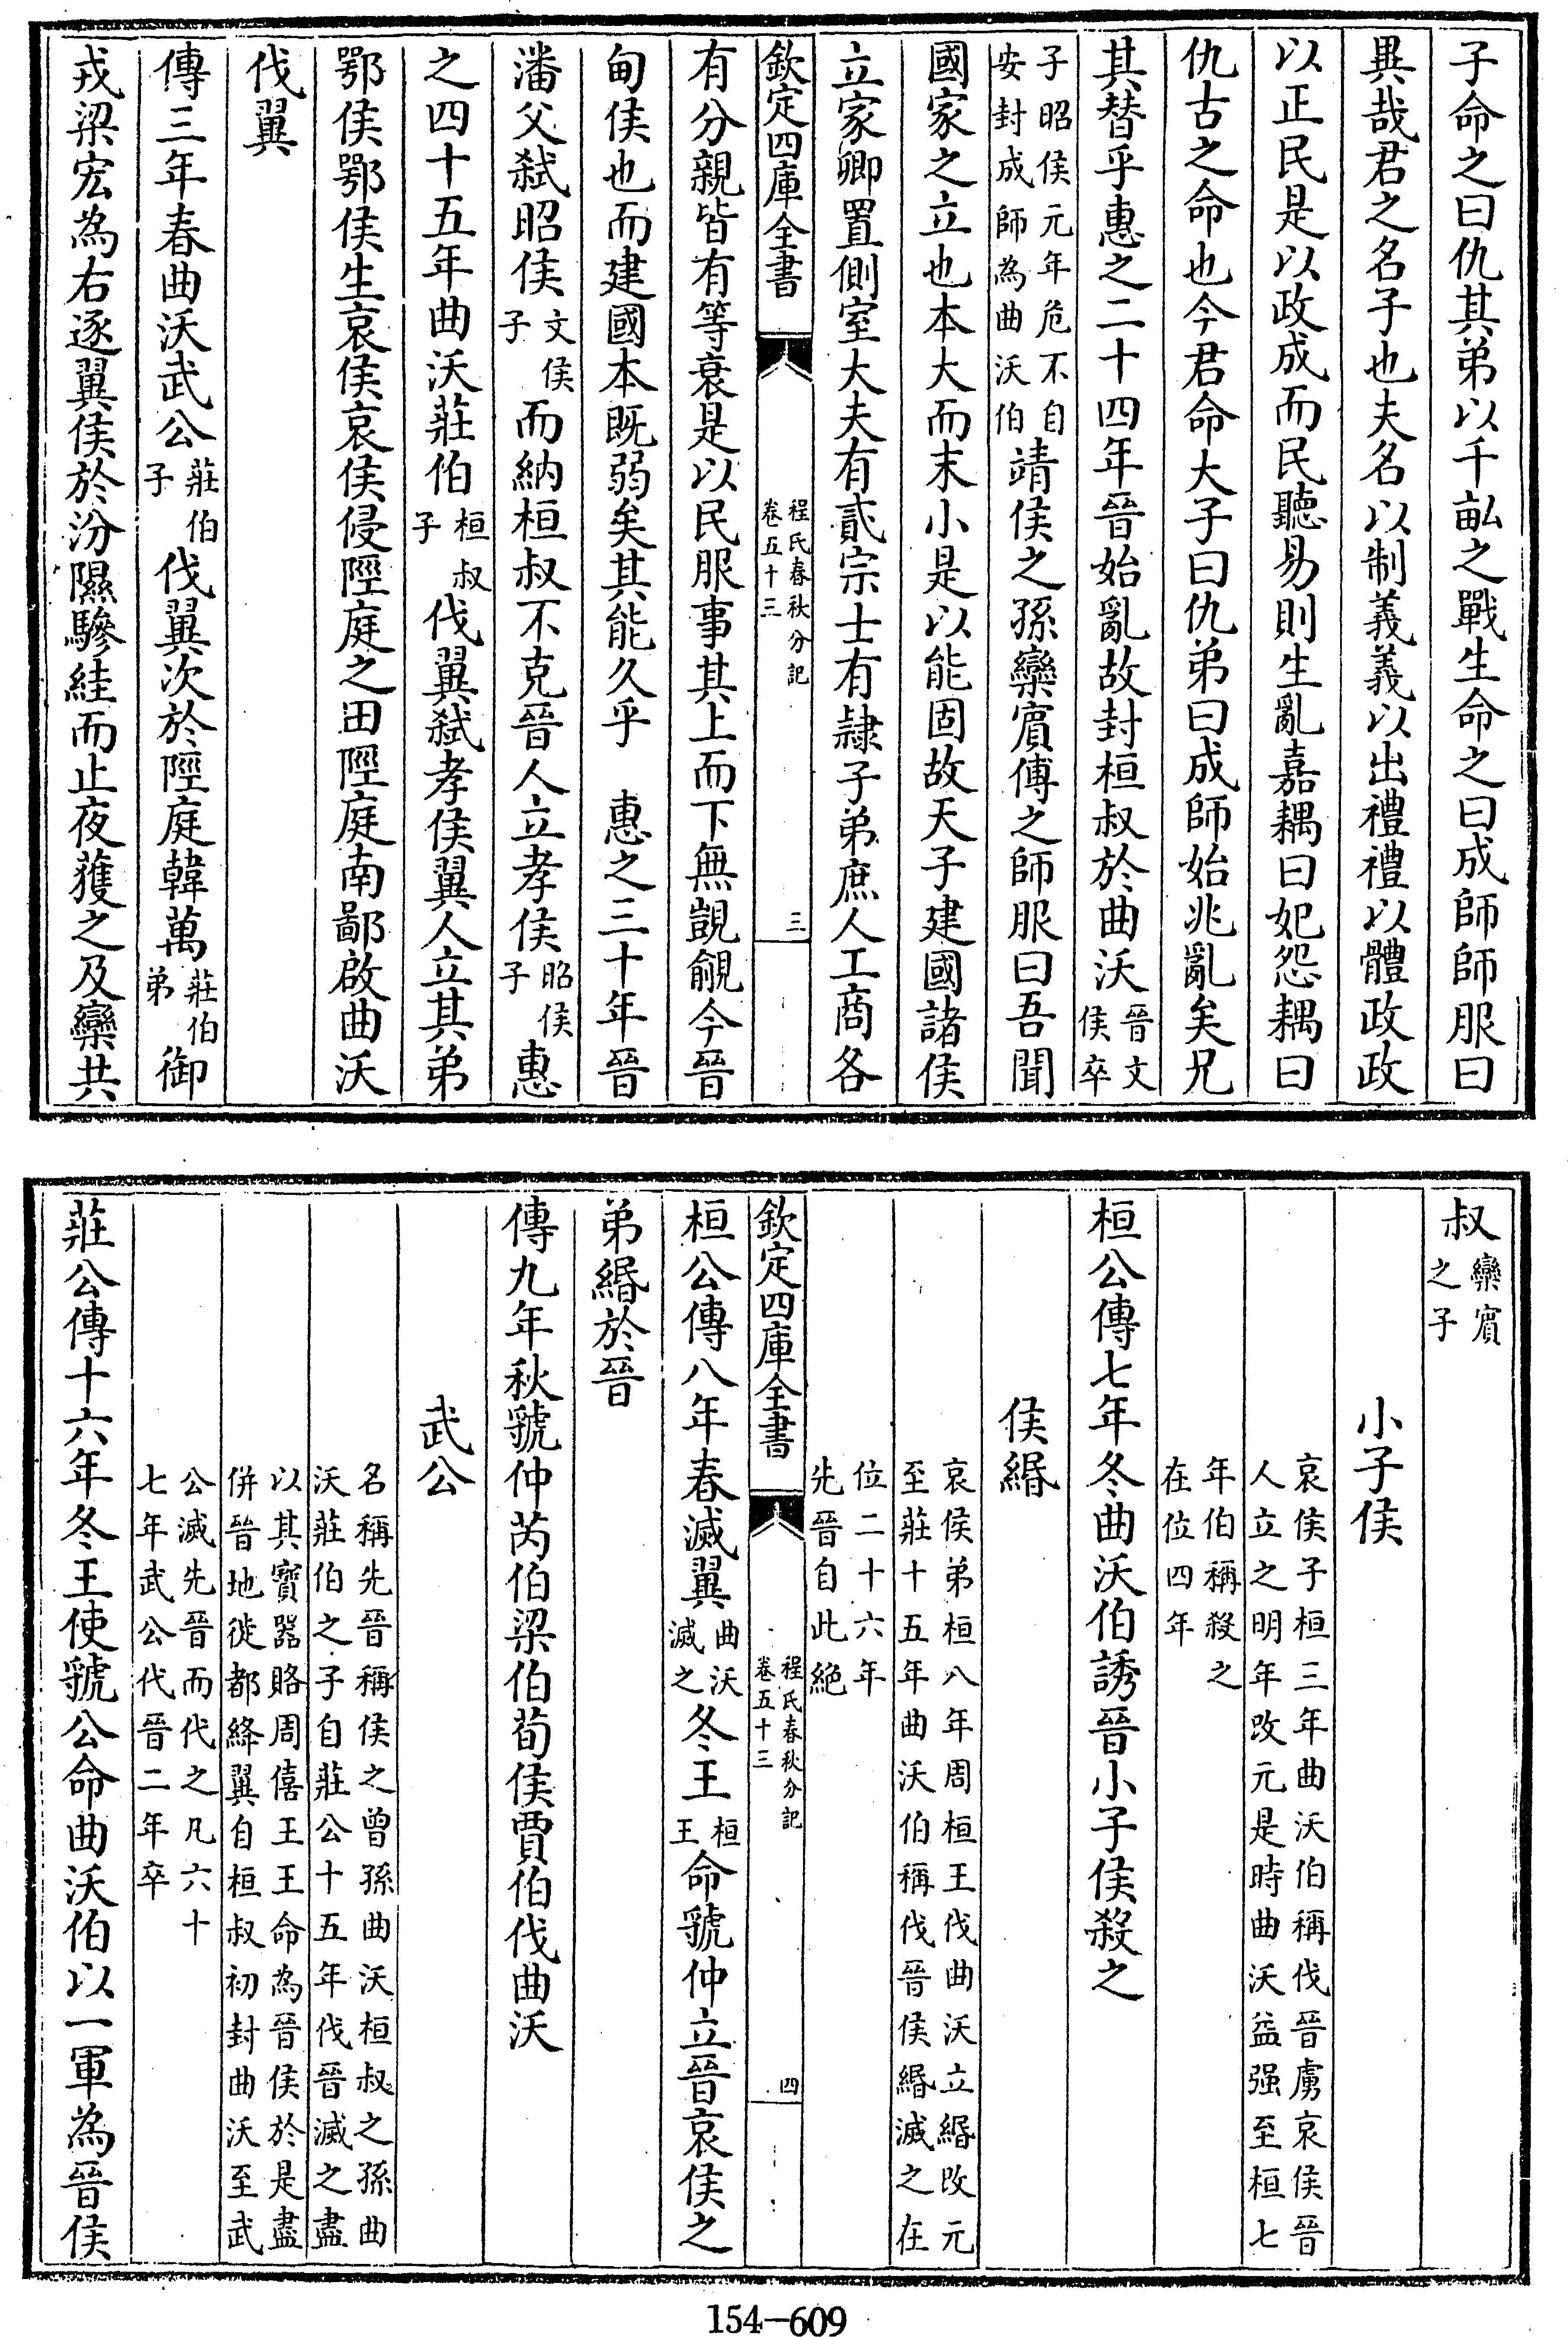 子命之曰仇其弟以千畝之戰生命之曰成師師服曰
異哉君之名子也夫名以制義義以出禮禮以體政政
以正民是以政成而民聽易則生亂嘉耦曰妃怨耦曰
仇古之命也今君命大子曰仇弟曰成師始兆亂矣兄
其替乎惠之二十四年晉始亂故封桓叔於曲沃晉文侯卒
子昭侯元年危不自安封成師為曲沃伯靖侯之孫欒賔傅之師服曰吾聞
國家之立也本大而末小是以能固故天子建國諸侯
立家卿置側室大夫有貳宗士有隷子弟庶人工商各
欽定四庫全書
程氏春秋分記
卷五十三
三
有分親皆有等衰是以民服事其上而下無覬覦今晉
甸侯也而建國本既弱矣其能久乎　惠之三十年晉
潘父弑昭侯文侯子而納桓叔不克晉人立孝侯昭侯子惠
之四十五年曲沃莊伯桓叔子伐翼弑孝侯翼人立其弟
鄂侯鄂侯生哀侯哀侯侵陘庭之田陘庭南鄙啟曲沃
伐翼
傳三年春曲沃武公莊伯子伐翼次於陘庭韓萬莊伯弟御
戎梁宏為右逐翼侯於汾隰驂絓而止夜獲之及欒共
叔欒賔之子
小子侯
哀侯子桓三年曲沃伯稱伐晉虜哀侯晉
人立之明年改元是時曲沃益强至桓七
年伯稱殺之
在位四年
桓公傳七年冬曲沃伯誘晉小子侯殺之
侯緡
哀侯弟桓八年周桓王伐曲沃立緡改元
至莊十五年曲沃伯稱伐晉侯緡滅之在
位二十六年
先晉自此絶
欽定四庫全書
程氏春秋分記
卷五十三
四
桓公傳八年春滅翼曲沃滅之冬王桓王命虢仲立晉哀侯之
弟緡於晉
傳九年秋虢仲芮伯梁伯荀侯賈伯伐曲沃
武公
名稱先晉穆侯之曾孫曲沃桓叔之孫曲
沃莊伯之子自莊公十五年伐晉滅之盡
以其寶器賂周僖王王命為晉侯於是盡
併晉地徙都絳翼自桓叔初封曲沃至武
公滅先晉而代之凡六十
七年武公代晉二年卒
莊公傳十六年冬王使虢公命曲沃伯以一軍為晉侯
154-609